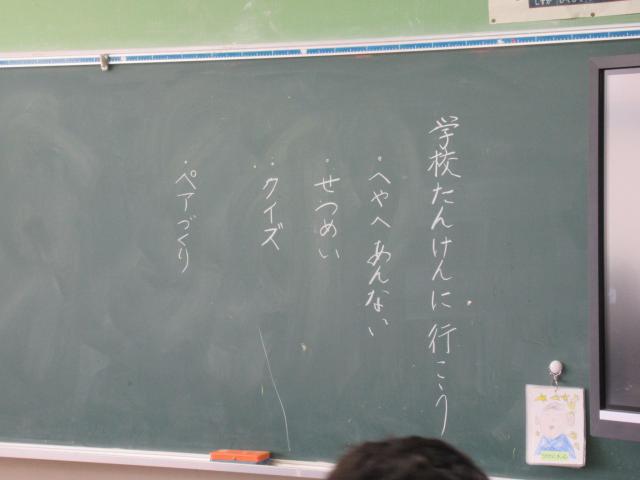 学校たんけんに行こう
・へやへあんない
・せつめい
・クイズ
・ペアづくり